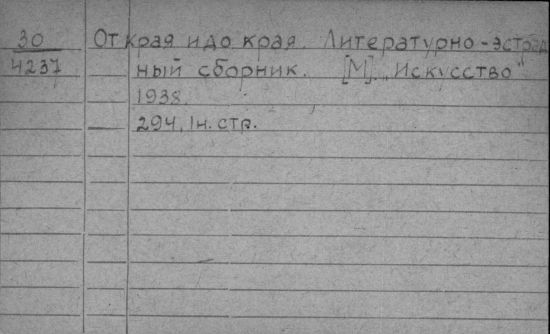 30
4237
От края и до края. Литературно-эстрад
ный сборник. [М]. „Искусство"
1938.
— 294, 1 н. стр.